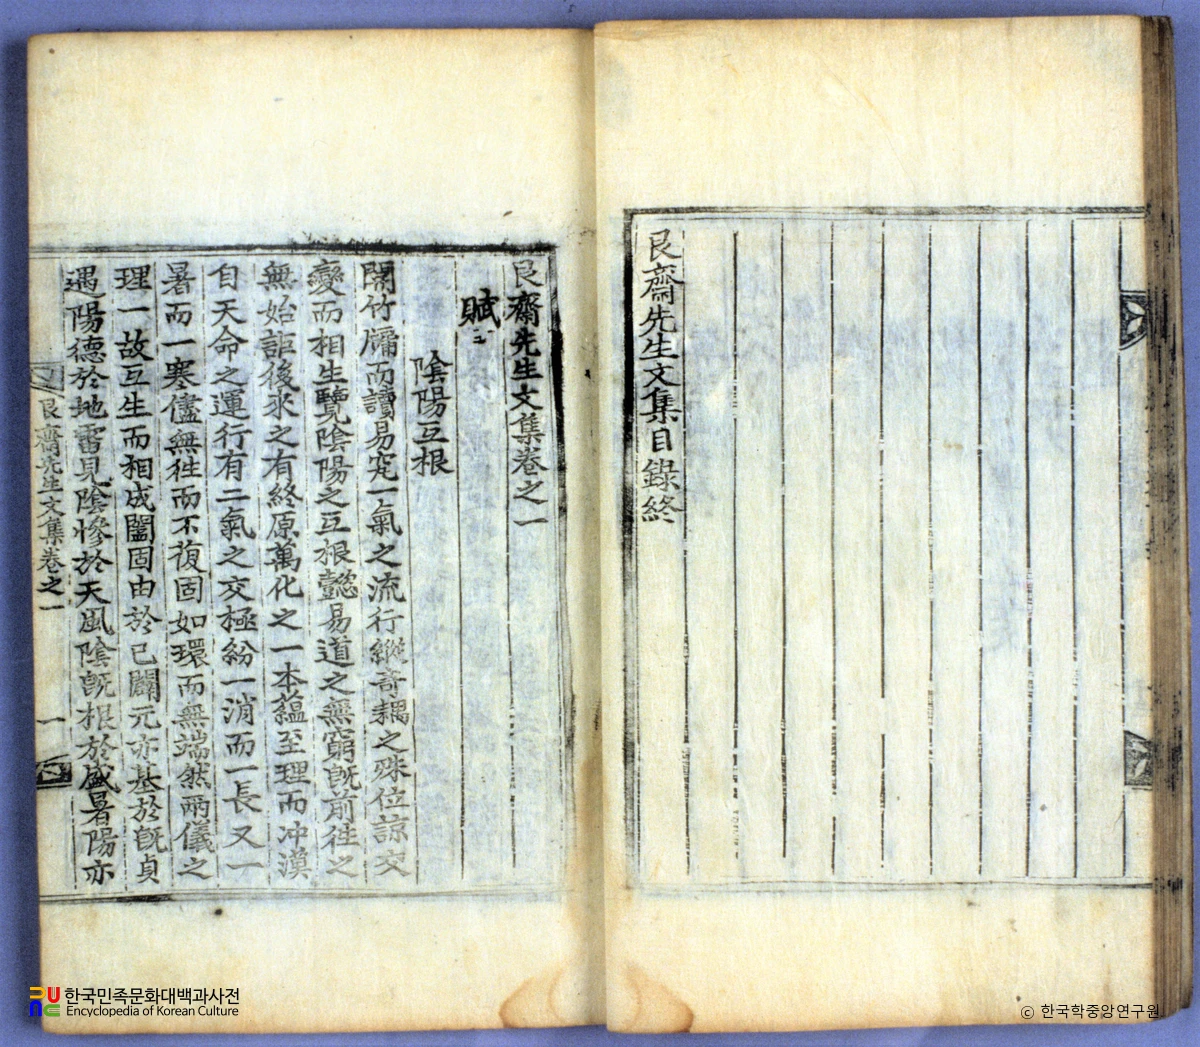 艮齋先生文集目錄終
艮齋先生文集卷之一
賦
陰陽互根
閉竹牖而讀易究一氣之流行縱奇耦之殊位諒交
變而相生覽陰陽之互根懿易道之無窮旣前徃之
無始詎後來之有終原萬化之一本蘊至理而冲漠
自天命之運行有二氣之交極紛一消而一長又一
暑而一寒儘無徃而不復固如環而無端然兩儀之
理一故互生而相成闔固由於已闢元亦基於旣貞
遇陽德於地雷見陰慘於天風陰旣根於盛暑陽亦
艮齋先生文集卷之一
一
한국민족문화대백과사전
Encyclopedia of Korean Culture
ⓒ 한국학중앙연구원